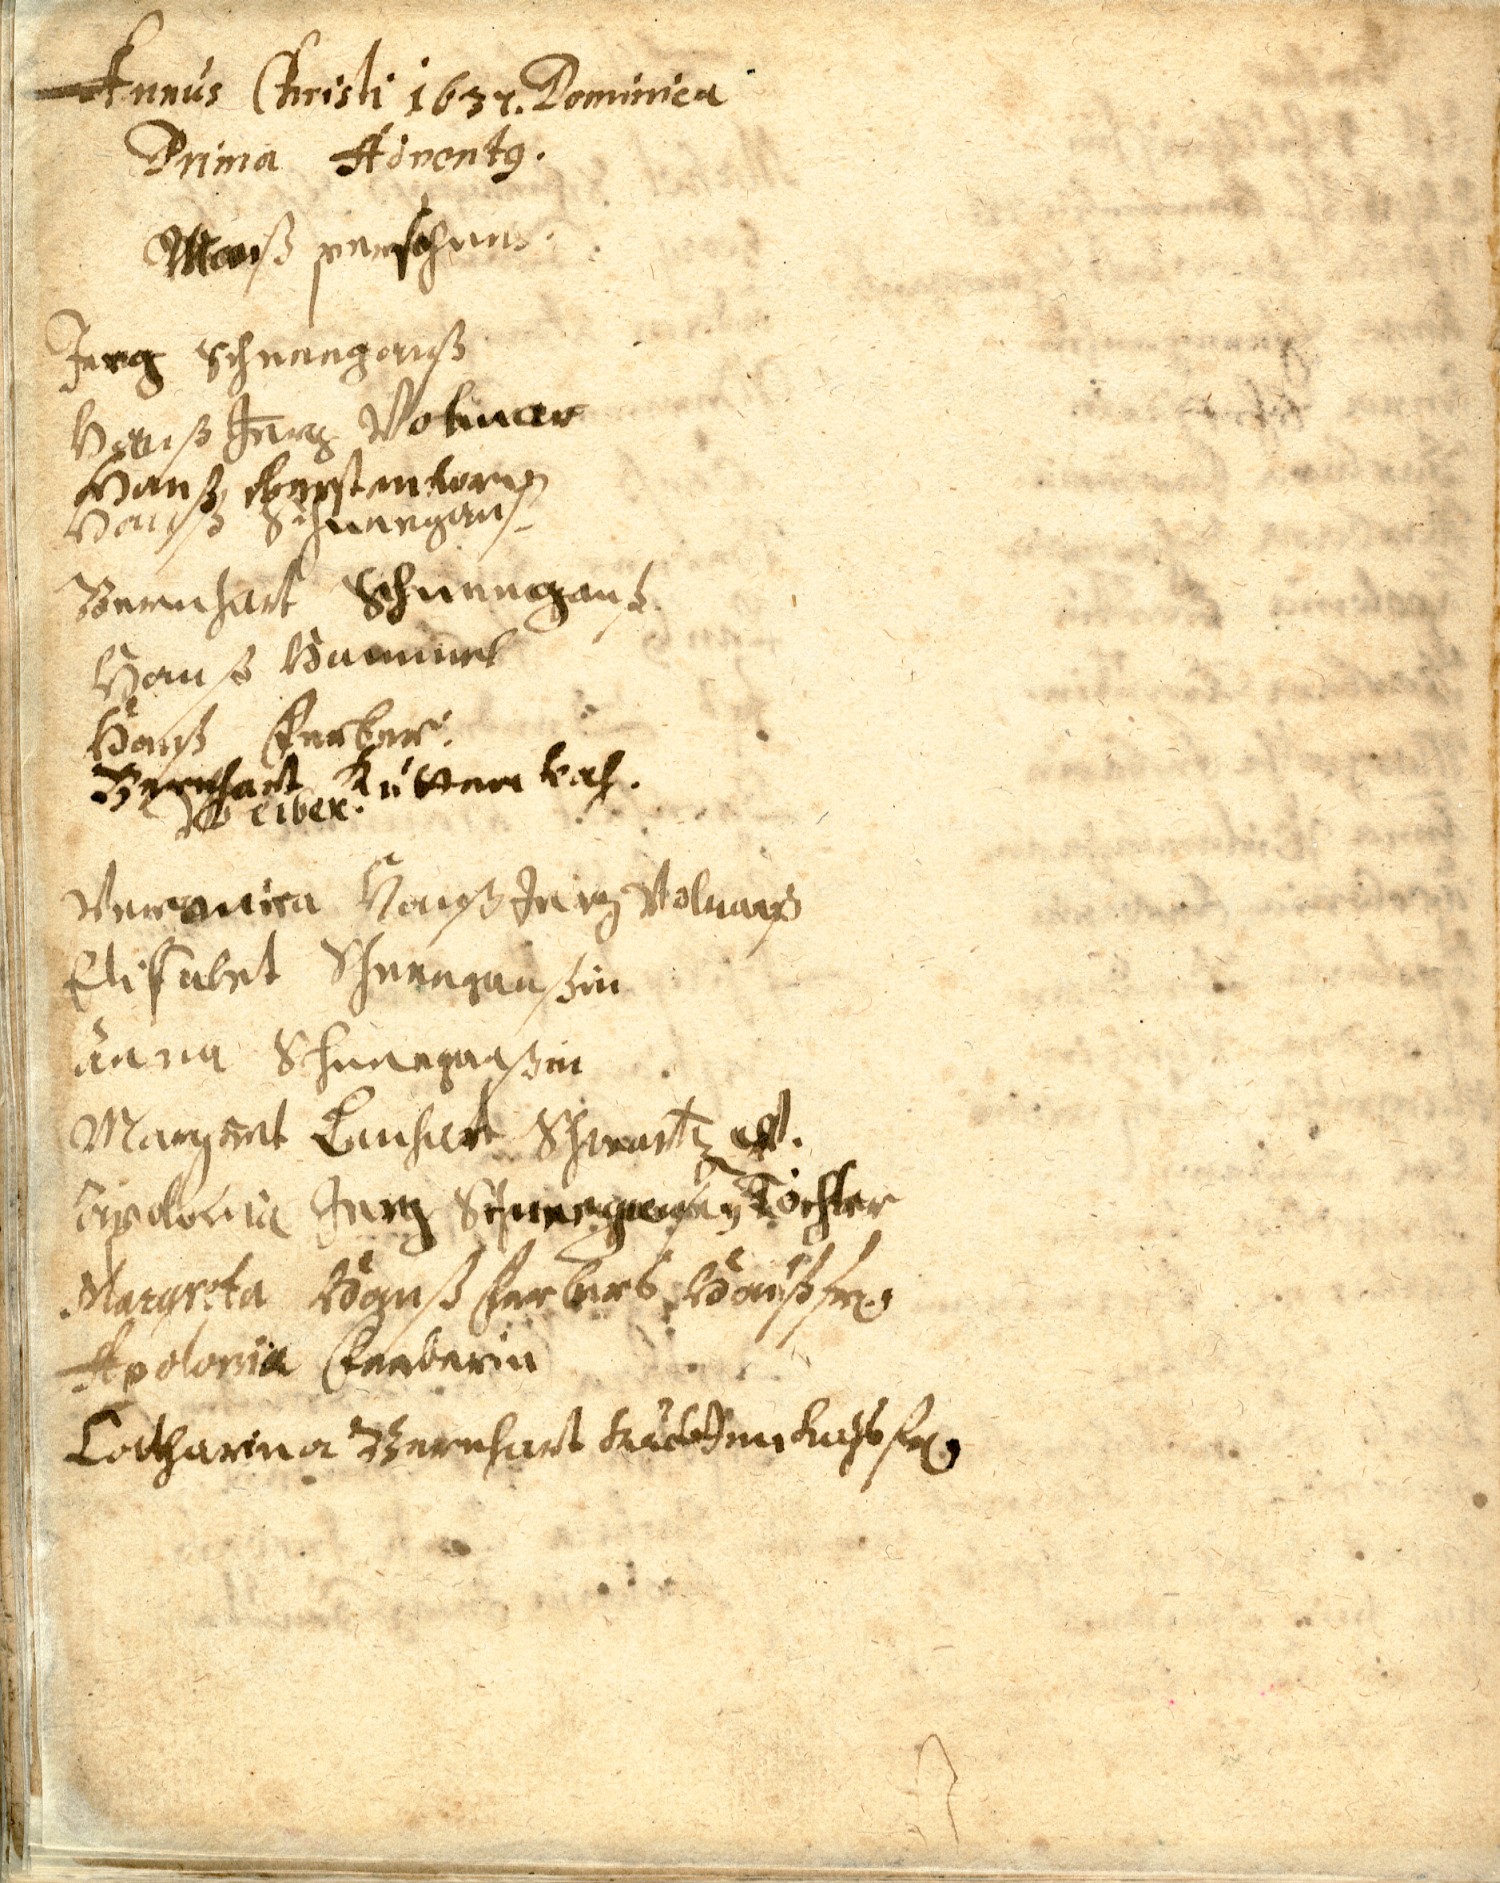 Annus Christi 1637. Dominica
Prima Advent9.
Manß perschan.
Jerg Schneegauß
Hanß Jerg Volmar
Hanß
Hanß Schneegauß
Bernhart Schneegauß
Hanß Hammel
Hanß Ferber.
Bernhart
Weiber.
Veronica Hanß Jerg Volmarß
Elisabet Schneegaußin
Anna Schneegaußin
Margret Lenhart Schwartz
Apolonia Jerg Tochter
Margreta Hanß Ferbers Haußfr.
Apolonia Ferberin
Catharina Bernhart